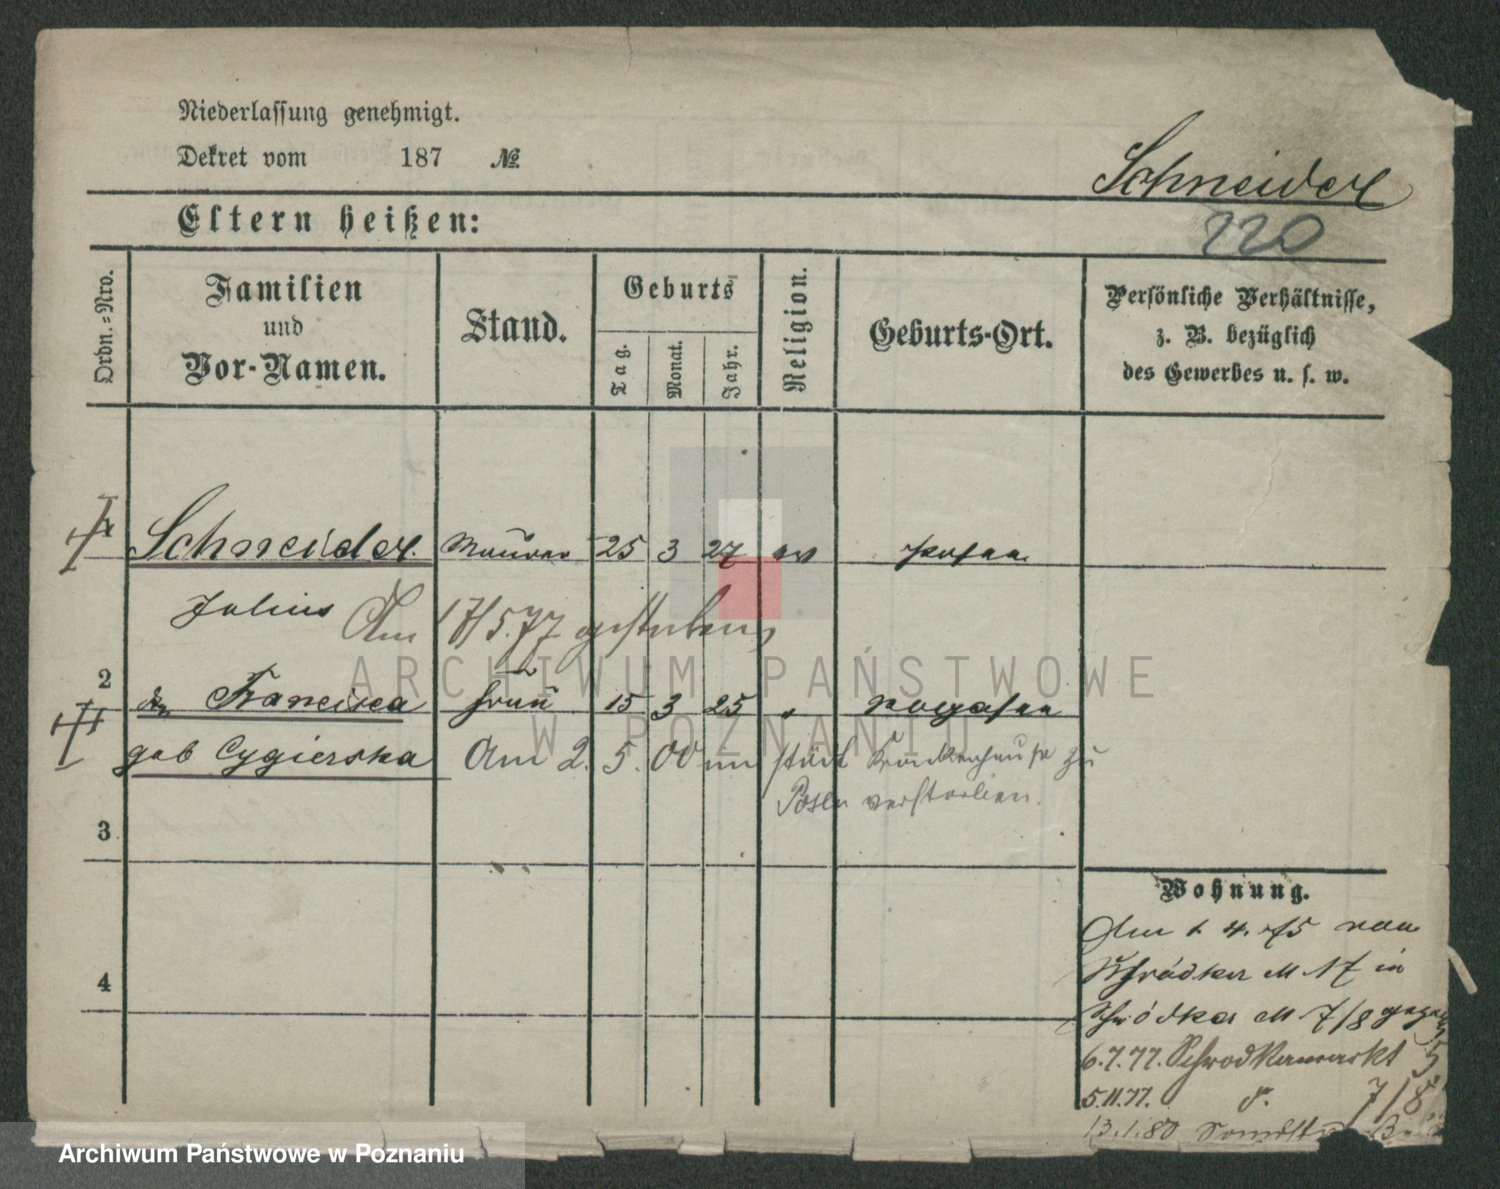 Niederlassung genehmigt.
Dekret vom 187 №
Schneider
220
Eltern heißen:
Ordn.=Nro.
Familien
und
Vor-Namen.
Stand.
Geburts
Tag.
Monat.
Jahr.
Religion.
Geburts-Ort.
Persönliche Verhältnisse,
z. B. bezüglich
des Gewerbes u. s. w.
Schneider. Maurer 25 3 27 ev Posen
Julius Am 17/5.77 gestorben
ARCHIWUM PAŃSTWOWE
W POZNANIU
2 Francisca Frau 15 3 25 Rogasen
geb Cygierska Am 2. 5. 00 im städt Krankenhause zu
Posen verstorben.
3
Wohnung.
Am 1 4. 75 von
Schrodka M 17 in
4
Schrodka M 7/8 gezogen
6.7.77. Schrodkamarkt 5
5.11.77. d. 7/8
13.1.80
Archiwum Państwowe w Poznaniu